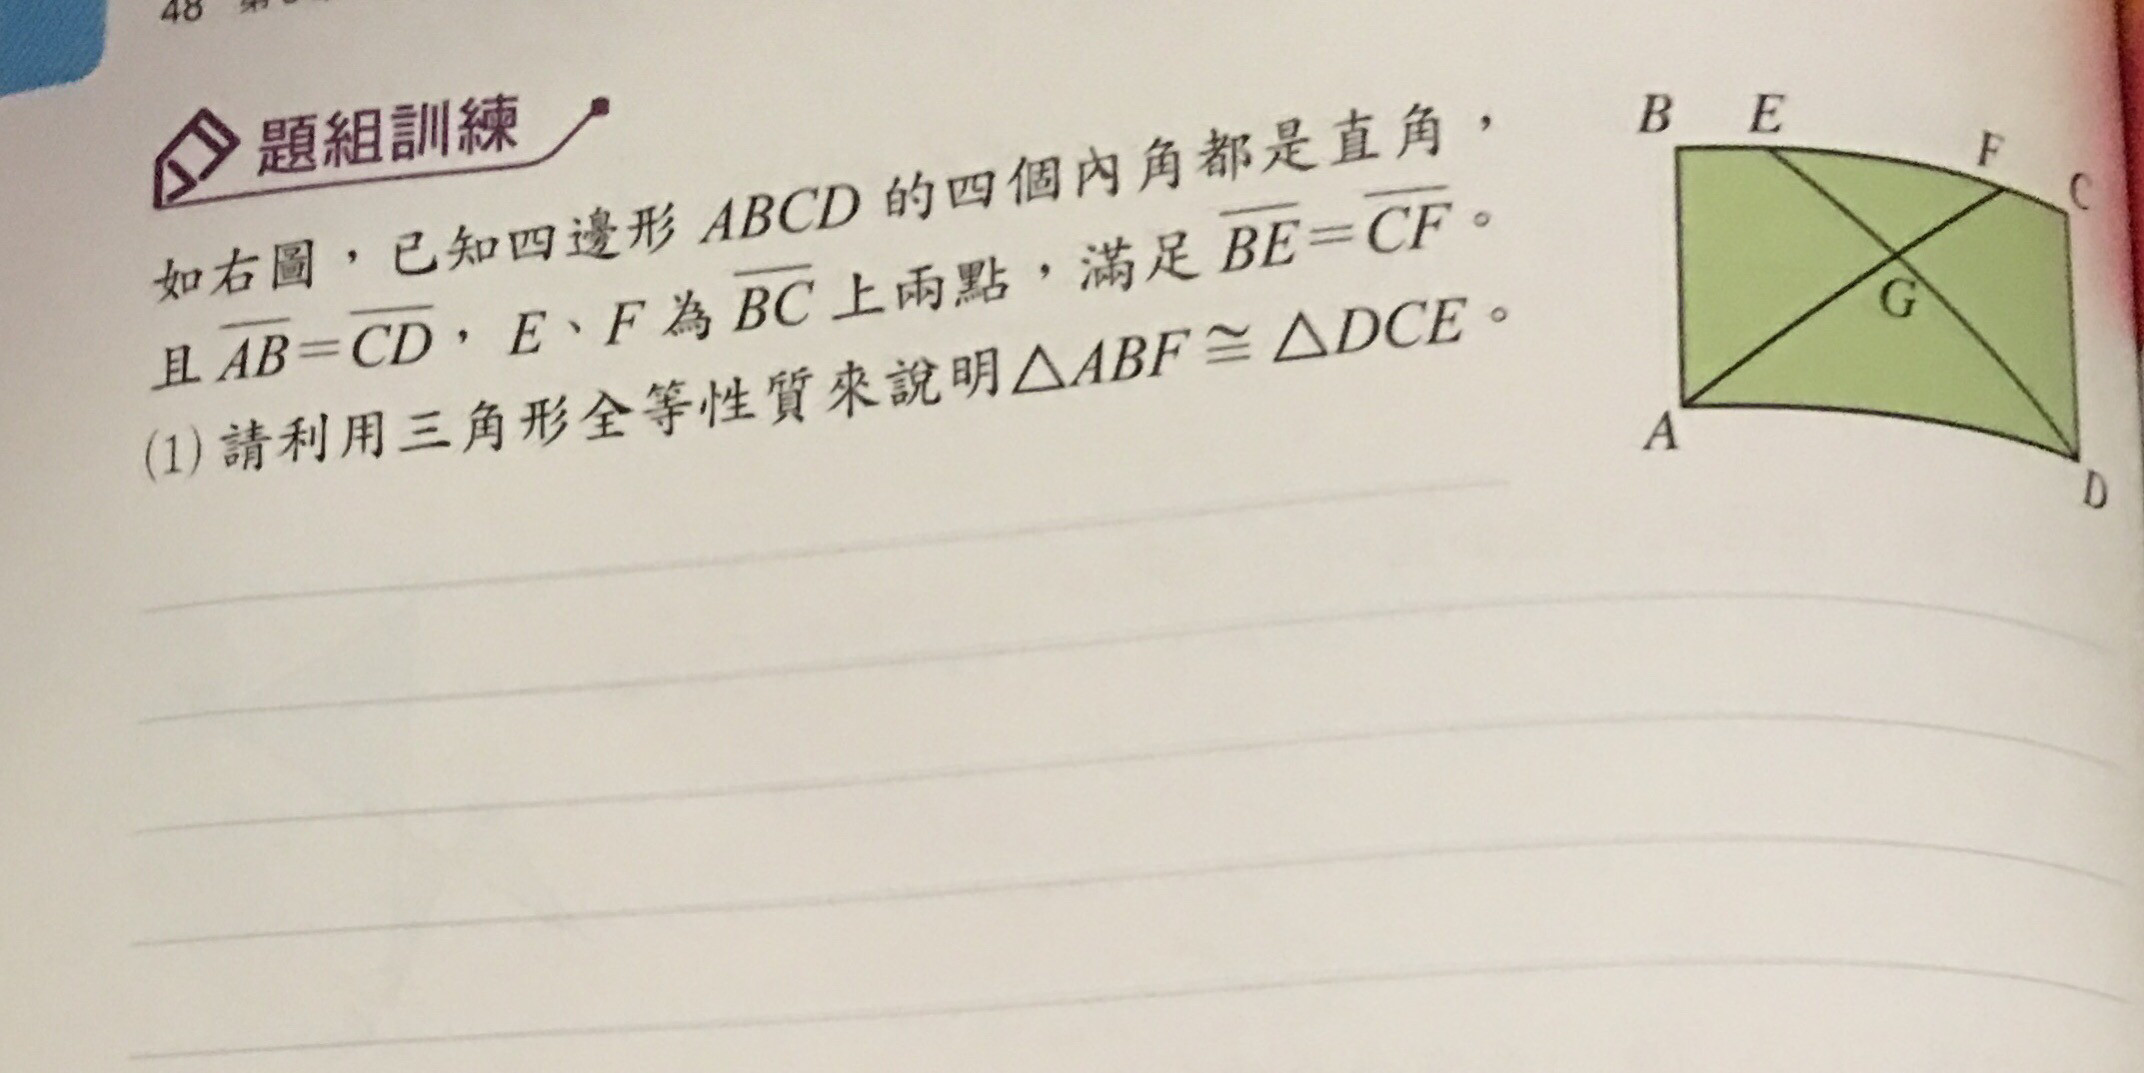 48 第
題組訓練
如右圖，已知四邊形 ABCD 的四個內角都是直角，
且 AB=CD，E、F 為 BC 上兩點，滿足 BE=CF。
(1) 請利用三角形全等性質來說明△ABF≅△DCE。
B E F C
G
A D